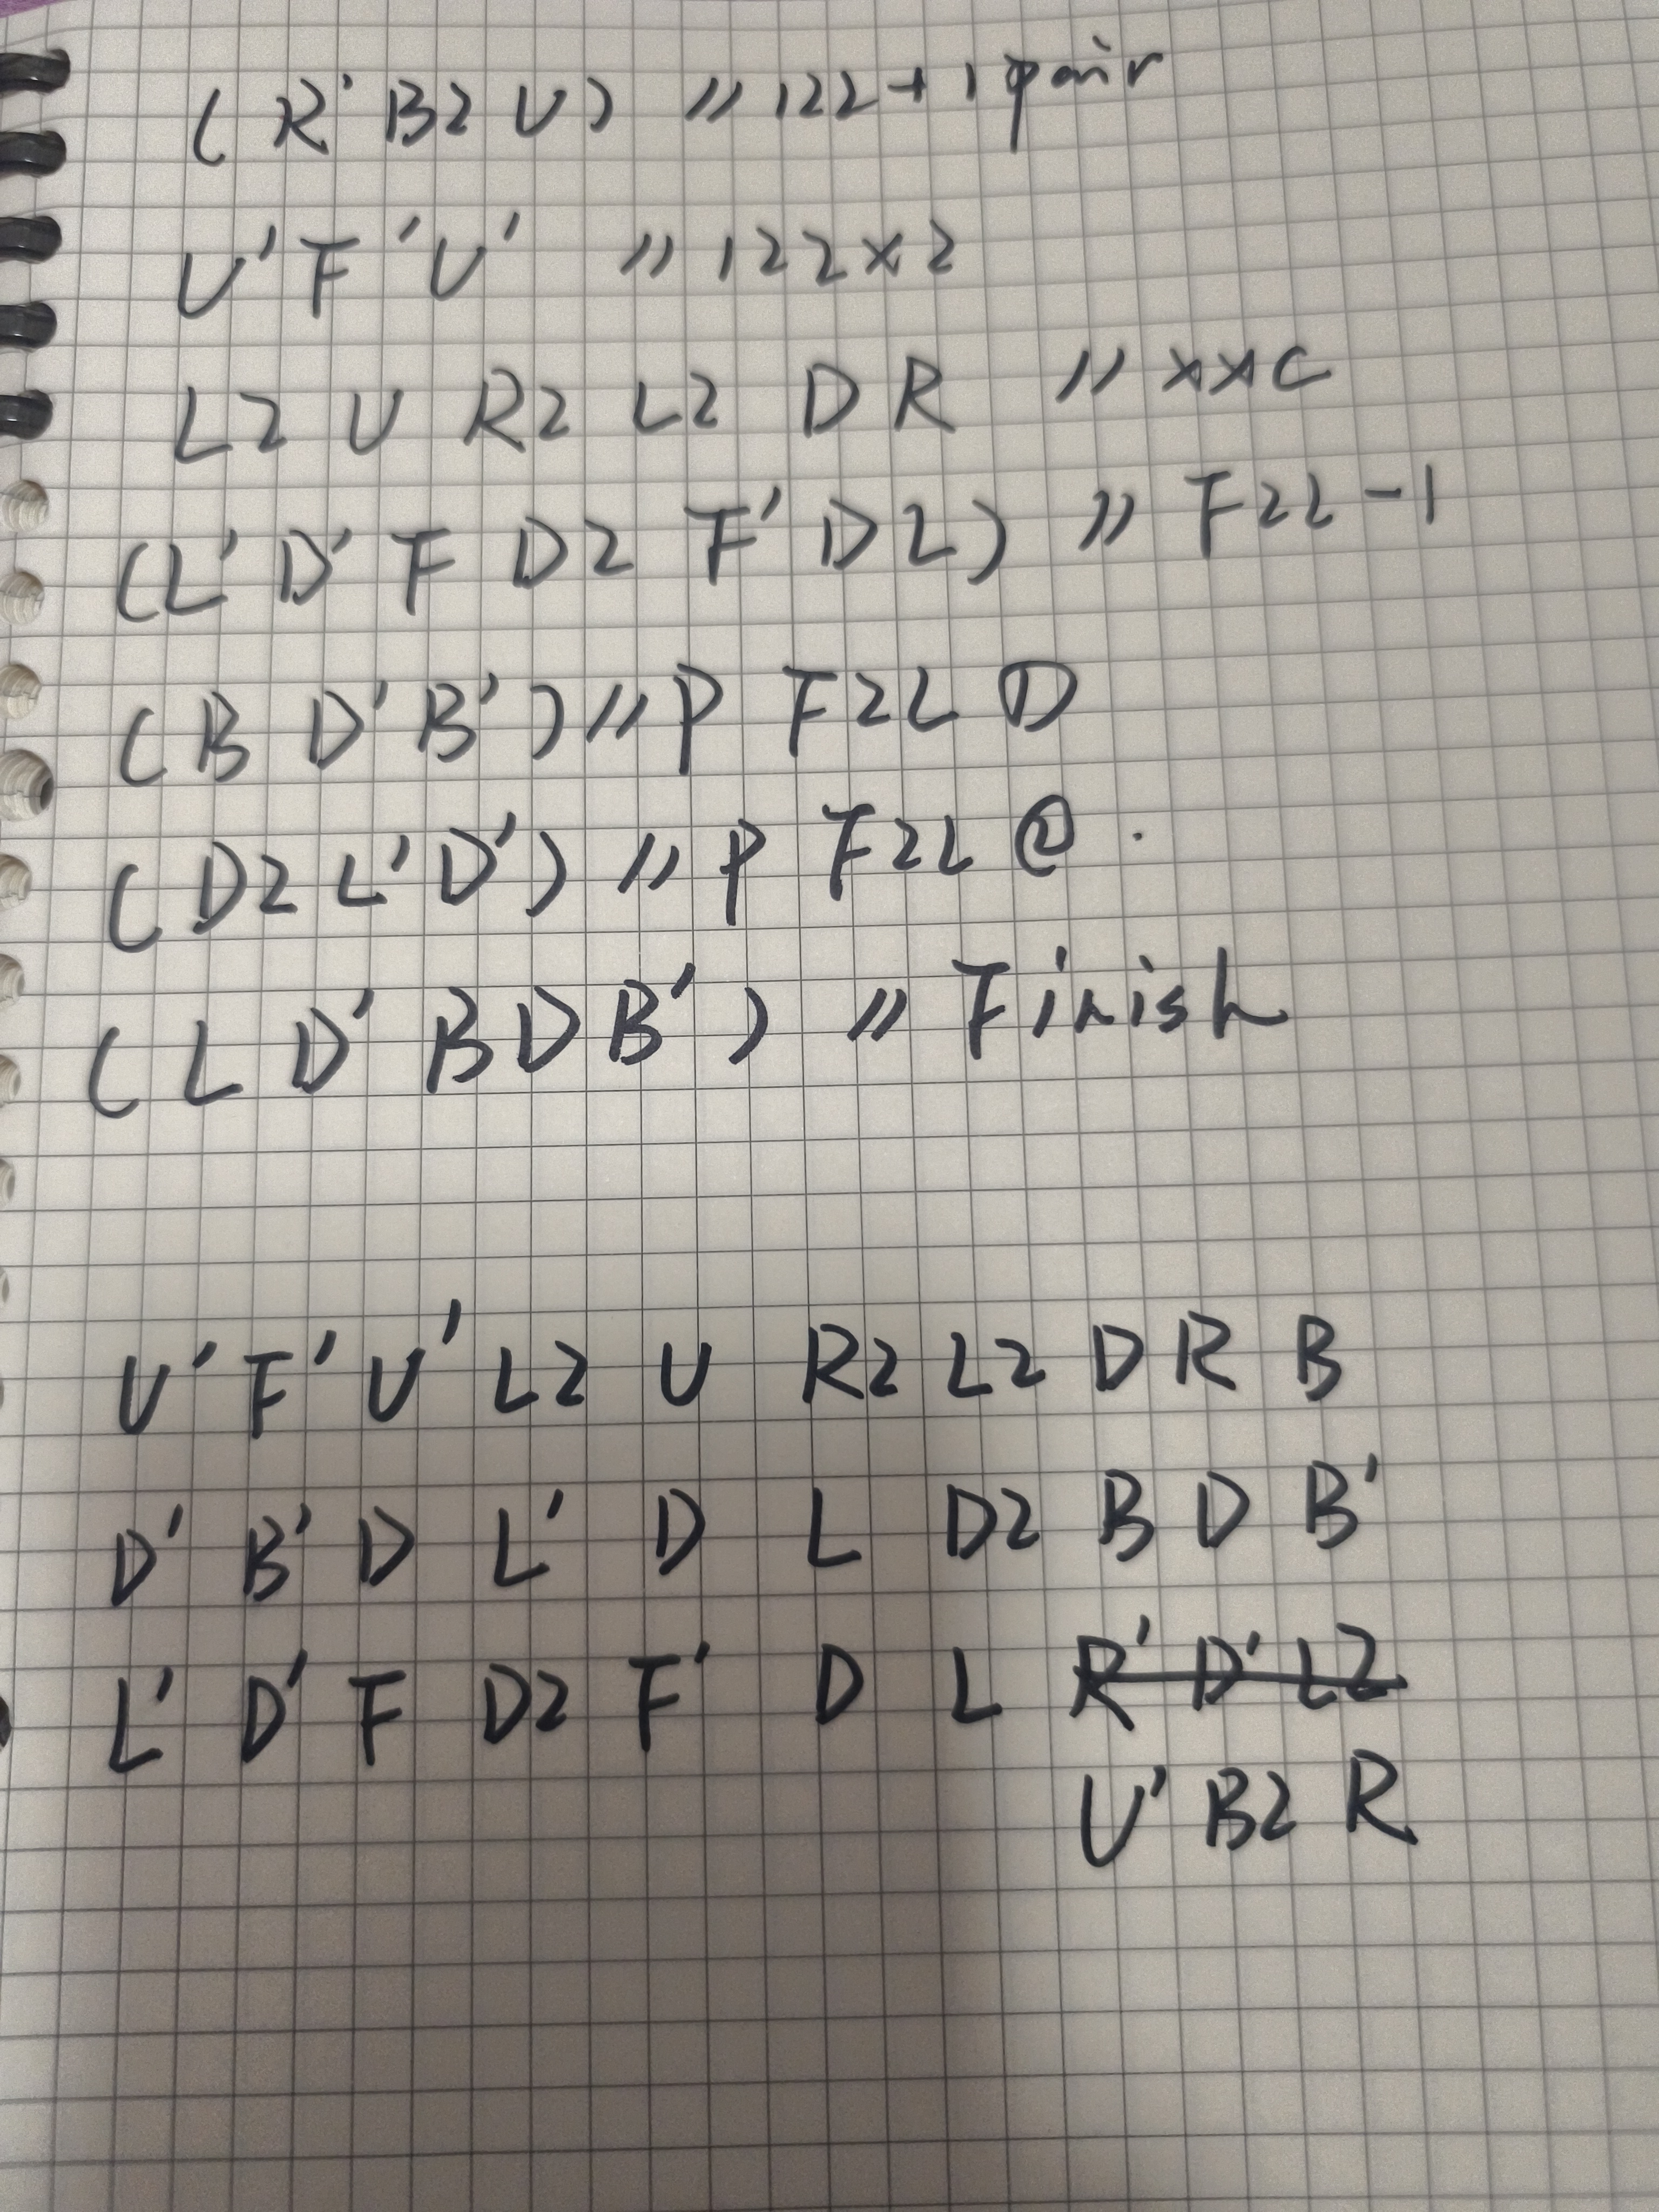 ( R' B2 U ) // 122 + 1 pair
U' F' U' // 122 x 2
L2 U R2 L2 D R // xxc
( L' D' F D2 F' D L ) // F2L -1
( B D' B' ) // P F2L ①
( D2 L' D' ) // P F2L ② .
( L D' B D B' ) // Finish
U' F' U' L2 U R2 L2 D R B
D' B' D L' D L D2 B D B'
L' D' F D2 F' D L R' D' L2
U' B2 R